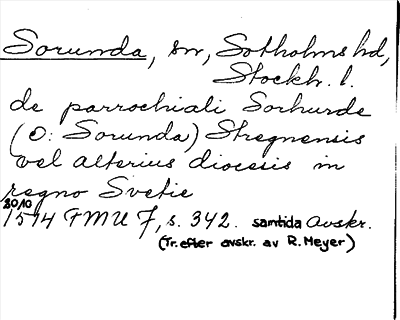 Sorunda, sn, Sotholms hd,
Stockh. l.
de parrochiali Sorhurde
(ɔ: Sorunda) Stregnensis
vel alterius diocesis in
regno Svetie
30/10
1514 FMU 7, s. 342. samtida avskr.
(Tr. efter avskr. av R. Meyer)